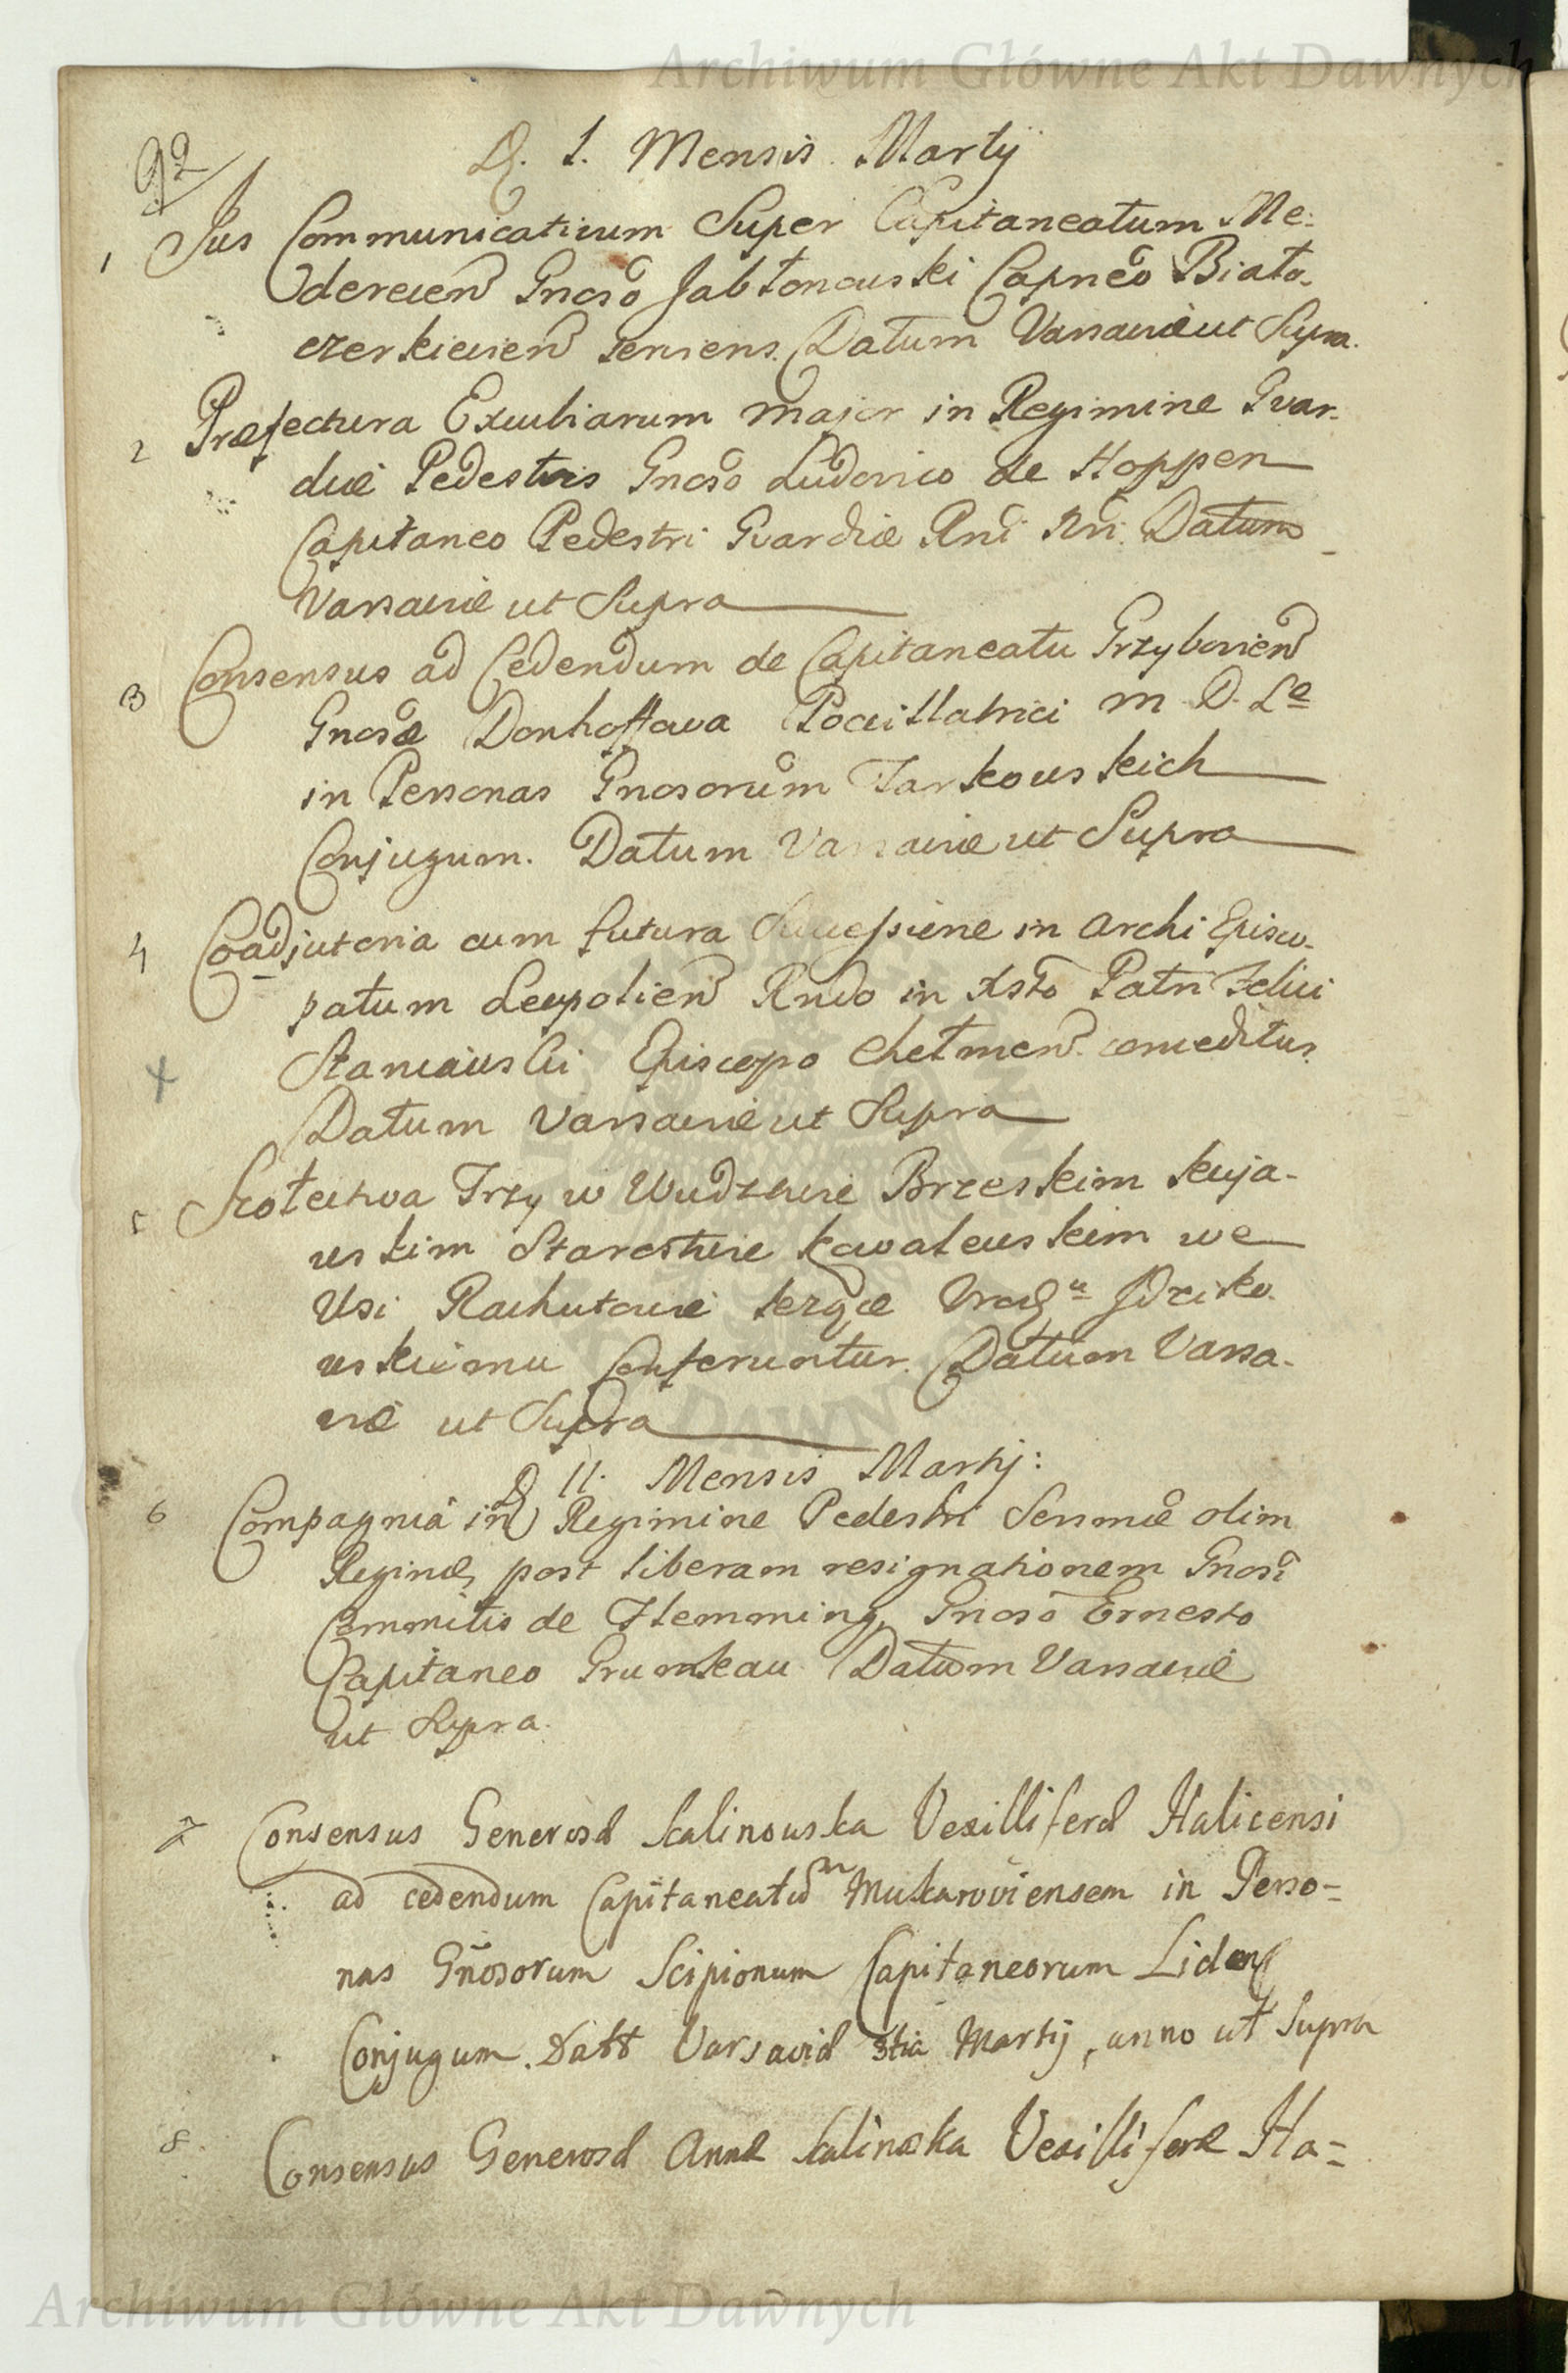 Archiwum Główne Akt Dawnych
92
D. 1. Mensis Martij
1 Jus Communicativum Super Capitaneatum Me-
derecen Gnoso Jabłonowski Capneo Biało-
czerkievien serviens. Datum Varsaviæ ut Supra.
2 Præfectura Excubiarum major in Regimine Gvar-
diæ Pedestris Gnoso Ludovico de Hoppen
Capitaneo Pedestri Gvardiæ Rni Nri. Datum
Varsaviæ ut Supra
3 Consensus ad Cedendum de Capitaneatu Grzybovien
Gnosæ Donhoffowa Pocillatrici M. D. L.
in Personas Gnosorum Tarkowskich
Conjugum. Datum Varsaviæ ut Supra
4 Coadjutoria cum futura Successione in Archi Episco-
patum Leopolien Rndo in Xsto Patri Felici
Episcopo Chełmen. conceditur.
Datum Varsaviæ ut Supra
5 Trzy w Wudztwie Brzeskim Kuja-
wskim Starostwie Kowalewskim we
Wsi Rachutowie
wskiemu Conferuntur. Datum Varsa-
viæ ut Supra
D 11. Mensis Martij:
6 Compagnia in Regimine Pedestri Serenmæ olim
Reginæ, post liberam resignationem Gnosi
Commitis de Flemming, Gnoso Ernesto
Capitaneo Grumkau. Datum Varsaviæ
ut Supra.
7 Consensus Generosæ Kalinowska Vexilliferæ Halicensi
ad cedendum Capitaneatum Mukaroviensem in Perso=
nas Gnosorum Scipionum Capitaneorum Liden
Conjugum. Datt Varsaviæ Martij, anno ut Supra
8. Consensus Generosæ Annæ Kalinoska Vexilliferæ Ha=
Archiwum Główne Akt Dawnych